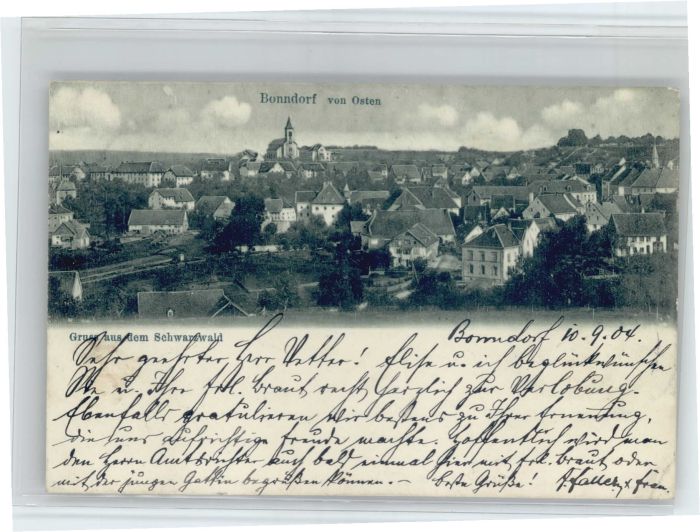 Bonndorf von Osten
Gruss aus dem Schwarzwald
Bonndorf 10.9.04.
Sehr geehrter Herr Vetter! Elise u. ich beglückwünschen
Sie u. Ihre frl. Braut recht herzlich zur Verlobung.
Ebenfalls gratulieren wir bestens zu Ihrer Ernennung,
die uns aufrichtige Freude machte. Hoffentlich wird man
den Herrn Amtsrichter auch bald einmal hier mit frl. Braut oder
mit der jungen Gattin begrüßen können. – beste Grüße! J. Faller & Frau.